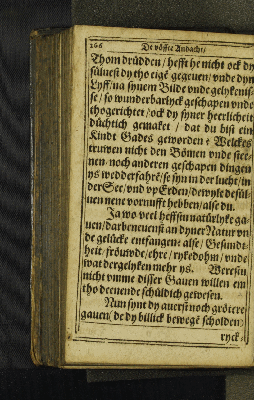 166 De vöffte Andacht/
Thom drüdden/ hefft he nicht ock dy
sülvest dy tho eigē gegeven/ unde dyn
Lyff/ na synem Bilde unde gelykenis-
se/ so wunderbarlyck geschapen unde
thogerichtet/ ock dy syner heerlicheit
düchtich gemaket / dat du bist ein
Kindt Gades geworden? Welckes
truwen nicht den Bömen unde stee-
nen noch anderen geschapen dingen
ys wedderfahrē/ se syn in der lucht/ in
der See/ und up Erden/ dewyle desül-
uen nene vornufft hebben/ alse du.
Ja wo veel heffstu natürlyke ga-
uen/ darbeneuenst an dyner Natur vn-
de gelücke entfangen: alse/ Gesundt-
heit/ fröuwde/ ehre/ rykedohm/ vnde
wat dergelyken mehr ys. Werestu
nicht vmme disser Gauen willen em
tho deenende schüldich gewesen.
Nun synt dy auerst noch grötere
gauen (de dy billick bewegē scholden)
ryck-